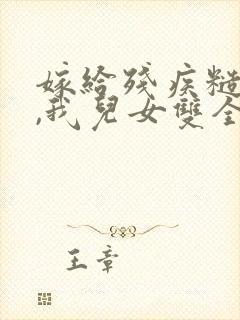 嫁給殘疾糙
,我兒女雙全
王章